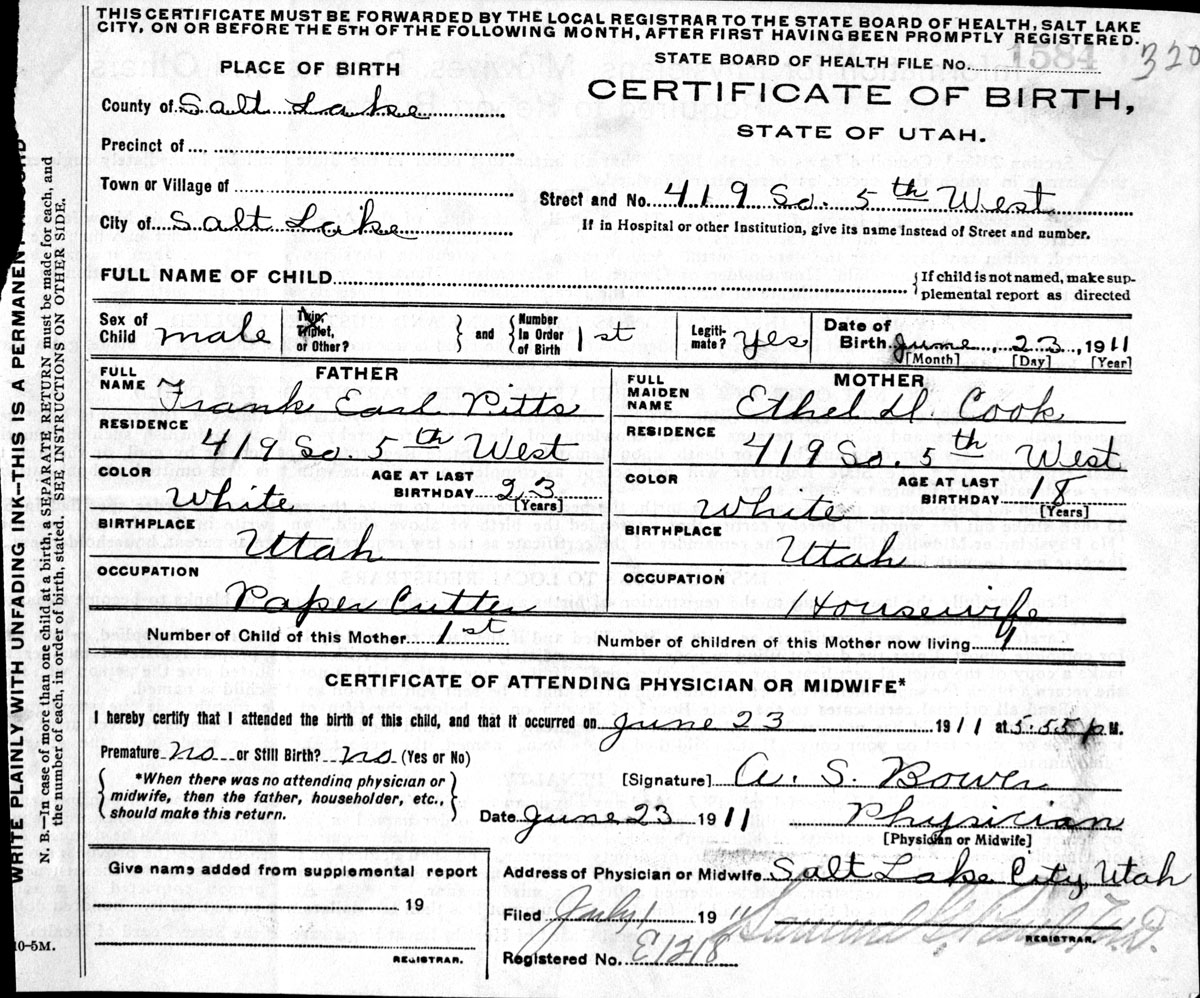 THIS CERTIFICATE MUST BE FORWARDED BY THE LOCAL REGISTRAR TO THE STATE BOARD OF HEALTH, SALT LAKE
CITY, ON OR BEFORE THE 5TH OF THE FOLLOWING MONTH, AFTER FIRST HAVING BEEN PROMPTLY REGISTERED.
STATE BOARD OF HEALTH FILE No. 1584 320
PLACE OF BIRTH
CERTIFICATE OF BIRTH,
STATE OF UTAH.
County of Salt Lake
Precinct of
Town or Village of
Street and No. 419 So. 5th West
City of Salt Lake
If in Hospital or other Institution, give its name instead of Street and number.
FULL NAME OF CHILD
{If child is not named, make sup-
plemental report as directed
Sex of Child male
Twin, Triplet, or Other?
and {Number In Order of Birth 1st
Legiti-mate? Yes
Date of Birth June 23, 1911
[Month] [Day] [Year]
FATHER
FULL NAME Frank Earl Pitts
RESIDENCE 419 So 5th West
COLOR White
AGE AT LAST BIRTHDAY 23
[Years]
BIRTHPLACE Utah
OCCUPATION Paper Cutter
MOTHER
FULL MAIDEN NAME Ethel D. Cook
RESIDENCE 419 So. 5th West
COLOR White
AGE AT LAST BIRTHDAY 18
[Years]
BIRTHPLACE Utah
OCCUPATION Housewife
Number of Child of this Mother 1st
Number of children of this Mother now living 1
CERTIFICATE OF ATTENDING PHYSICIAN OR MIDWIFE*
I hereby certify that I attended the birth of this child, and that it occurred on June 23 1911 at 5:55 p M.
Premature No or Still Birth? No (Yes or No)
{*When there was no attending physician or
midwife, then the father, householder, etc.,
should make this return.}
[Signature] A. S. Bower
Date June 23 1911 Physician
[Physician or Midwife]
Give name added from supplemental report
19
REGISTRAR.
Address of Physician or Midwife Salt Lake City, Utah
Filed July 1 1911
REGISTRAR.
Registered No. E1218
WRITE PLAINLY WITH UNFADING INK—THIS IS A PERMANENT RECORD
N. B.—In case of more than one child at a birth, a SEPARATE RETURN must be made for each, and
the number of each, in order of birth, stated. SEE INSTRUCTIONS ON OTHER SIDE.
10-5M.